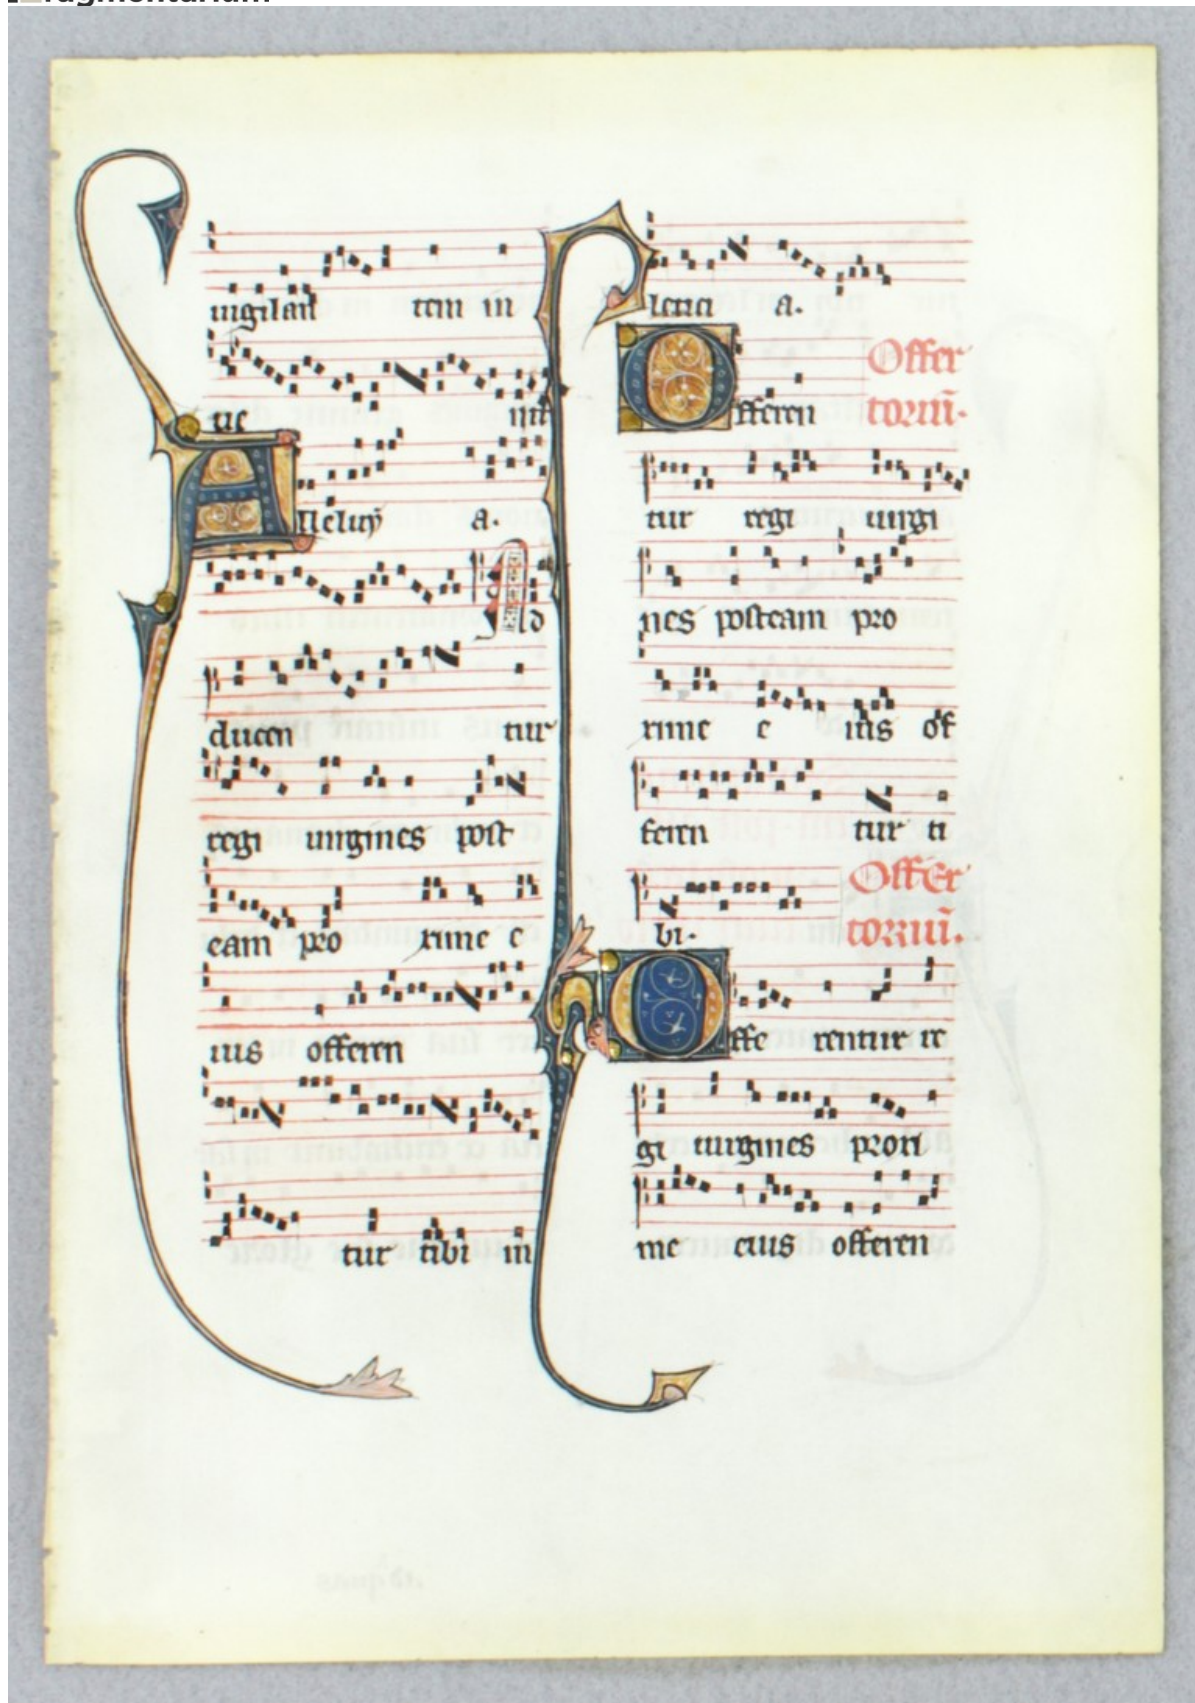 ragmentarium
uigilan tem in
ue ni
Alleluy a.
Ad
ducen tur
regi uirgines post
eam pro xime e
ius offeren
tur tibi in
leticia a.
Offer
Offeren toriū.
tur regi uirgi
nes posteam pro
xime e ius of
feren tur ti
Offer
bi. toriū.
Offe rentur re
gi uirgines proxi
me eius offeren